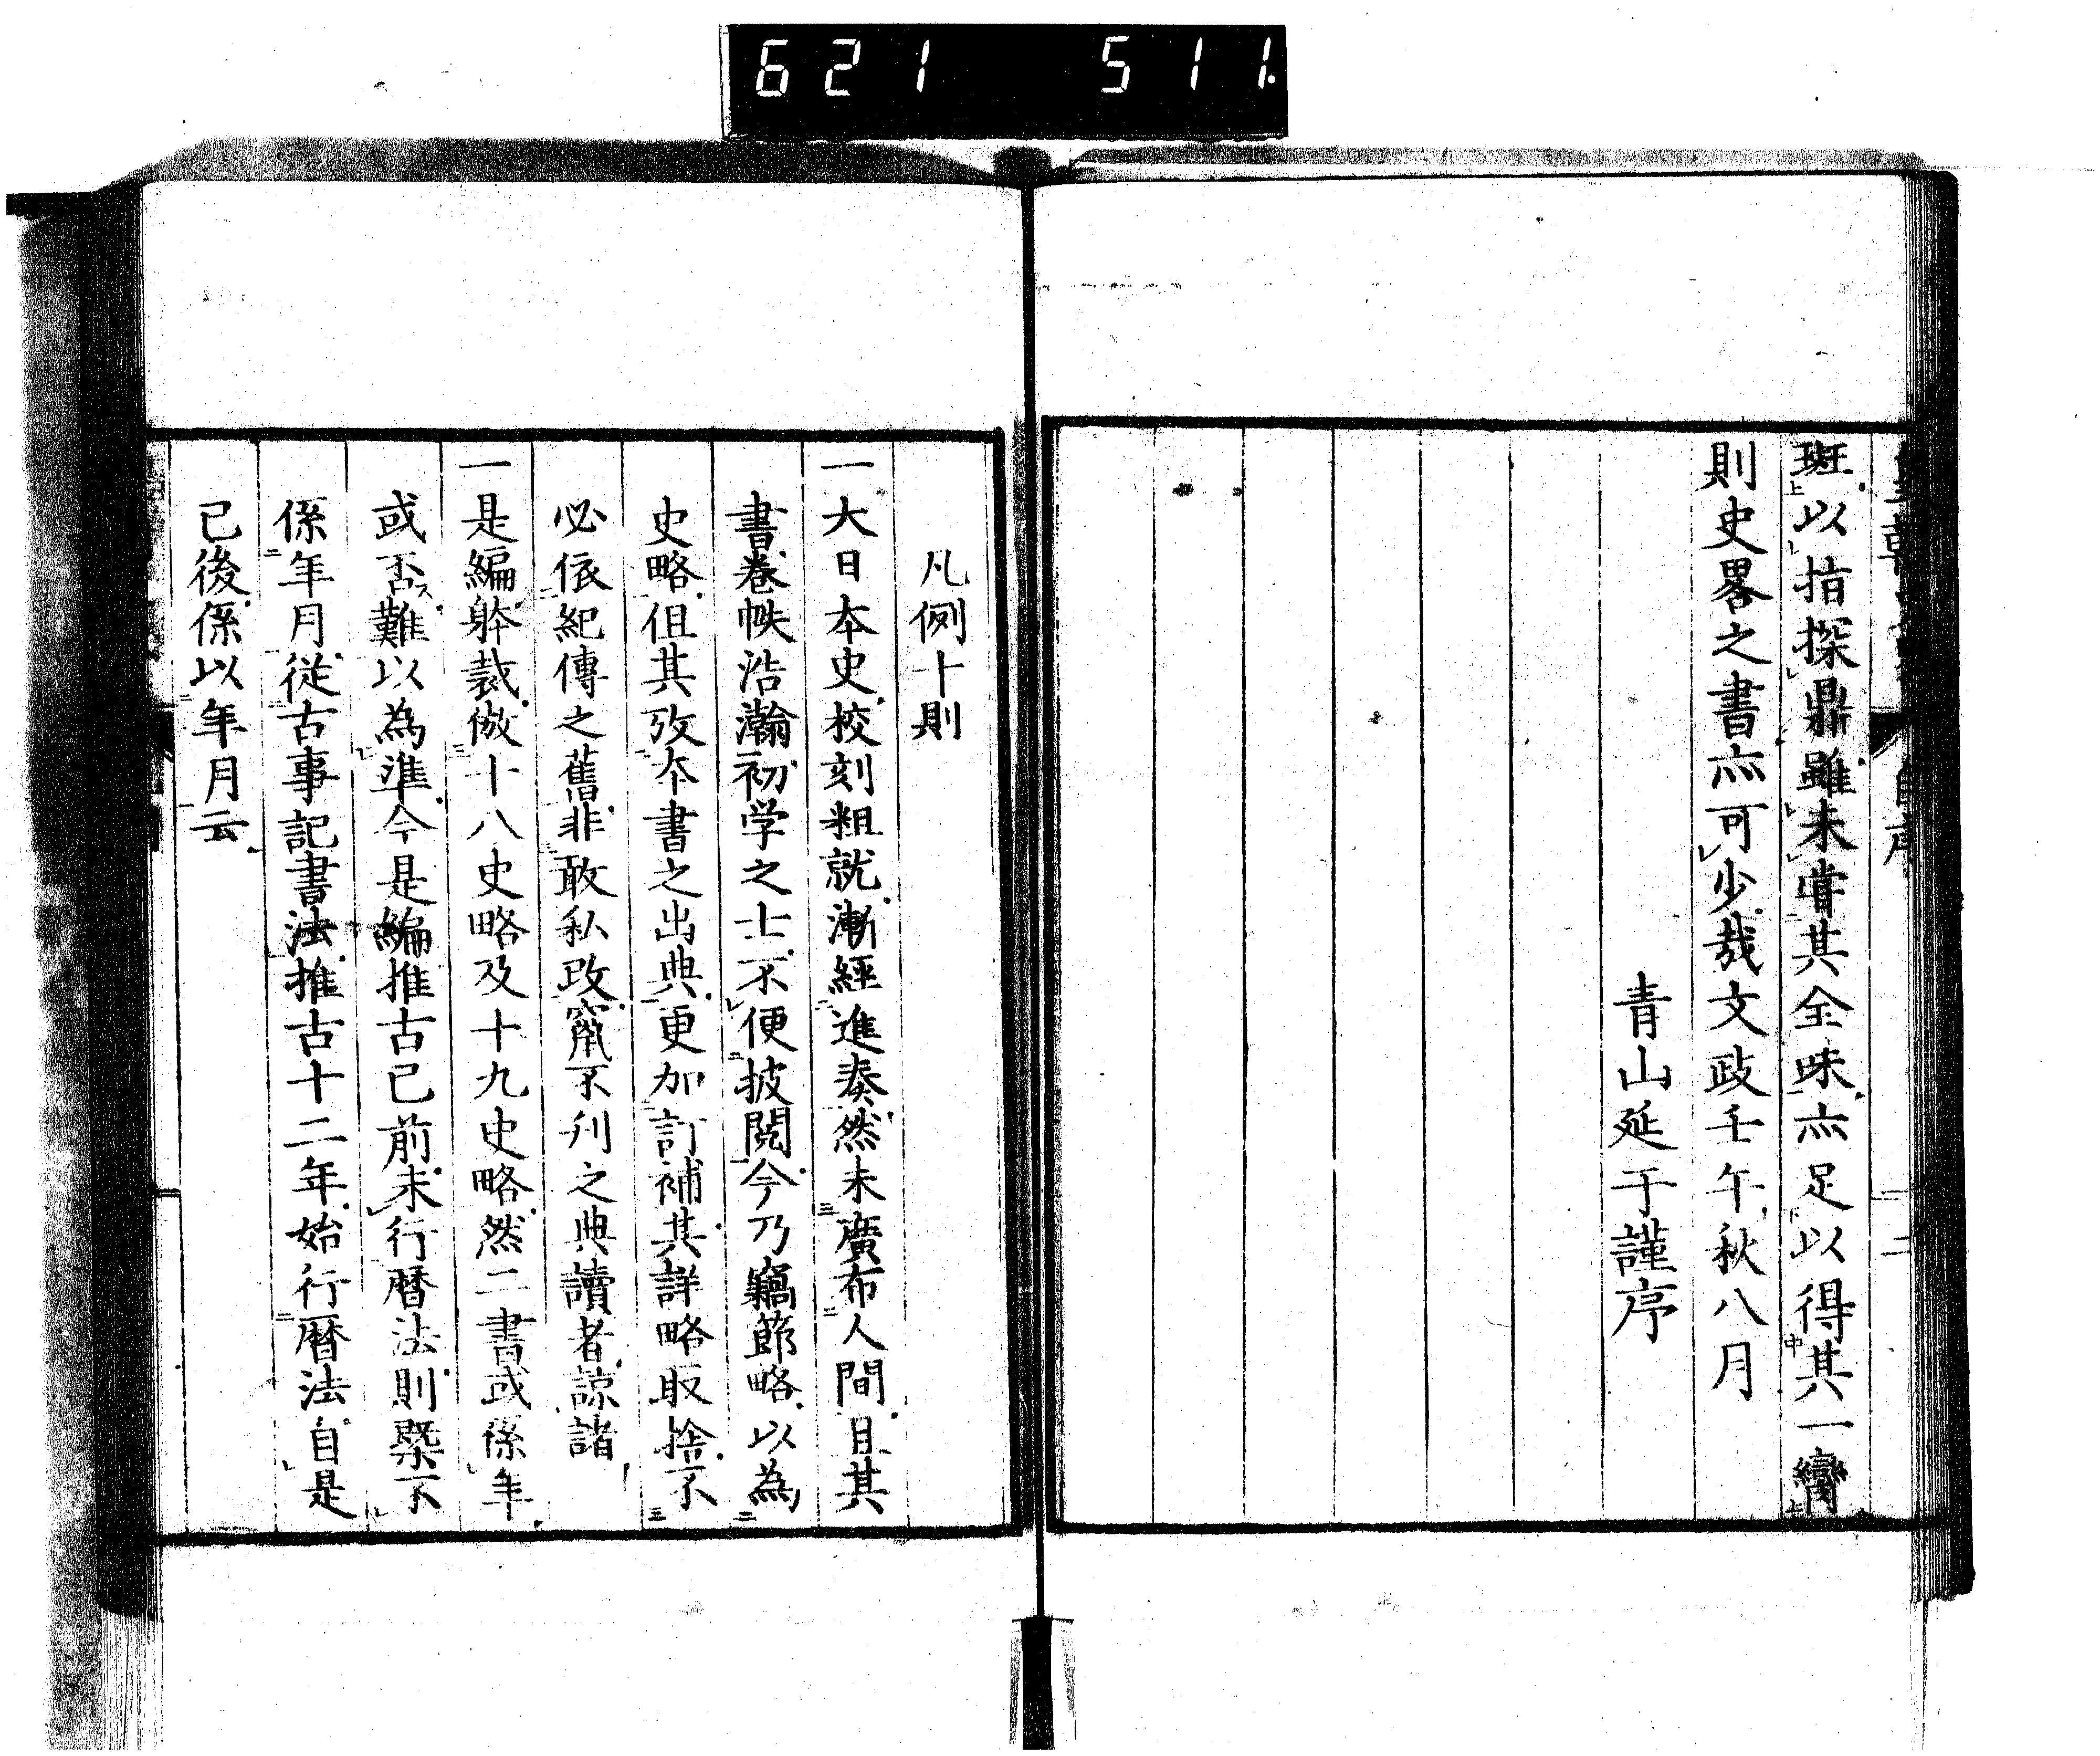 621 511.
斑以指探鼎雖未嘗其全味亦足以得其一臠
則史畧之書亦可少哉文政壬午秋八月
青山延于謹序
凡例十則
一大日本史校刻粗就漸經進奏然未廣布人間且其
書卷帙浩瀚初学之士不便披閲今乃竊節略以為
史略但其攷本書之出典更加訂補其詳略取捨不
必依紀傳之舊非敢私改竄不刋之典讀者諒諸
一是編躰裁倣十八史略及十九史略然二書或係年
或否難以為準今是編推古已前未行暦法則槩不
係年月從古事記書法推古十二年始行暦法自是
已後係以年月云